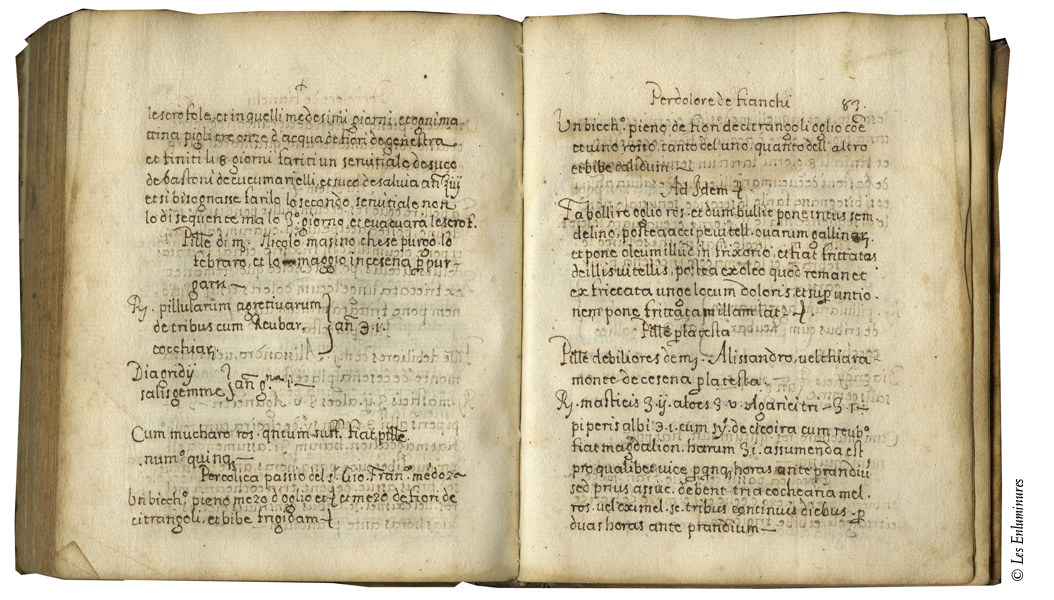 le scrofole, et in quelli medesimi giorni, et ogni ma-
ttina pigli tre onze d'acqua de fiori de genestra
et finiti li 8 giorni fariti un servitiale de suco
de bastoni de cucumarielli, et suco de salvia añ ℥iij
et si bisognasse farilo lo secondo servitiale non
lo di sequente ma lo 3º giorno, et evacuarà le scrof.
Pille di mº. Nicolo masino che se purgò lo
febraro, et lo maggio in cesena p pur-
gars
R. pillularum agretivarum
de tribus cum Reubar.
cocchiar.
añ ℈.i.
Diagridij
salis gemme
añ gna i
Cum mucharo ros. qntum suff. fiat pille
numº quinq
Per colica passio del s. Gio. Franº.
Un bicchº. pieno mezo d'oglio et et mezo de fiori de
citrangoli, et bibe frigidam
Per dolore de fianchi 83.
Un bicchº. pieno de fiori de citrangoli oglio cõe
et uino rosso tanto del uno quanto dell'altro
et bibe calidum
Ad Idem
Fa bollire oglio ros. et dum bullit pone intus sem.
delino, postea accipe uitell. ouarum gallinar,
et pone oleum illud in frixorio, et fiat frittatas
dellis uitellis, postea ex oleo quod remanet
ex frictata unge locum doloris, et sup untio-
nem pone frittatam illam
Pille p la testa
Pille debiliores de mº. Alissandro, uel chiara-
monte de cesena p la testa.
R. masticis ʒ.ij. aloes ʒ.v. Agarici tri
piperis albi ℈.i. cum sy. de cicoira cum reubº
fiat magdalion. harum ʒ i. assumenda est
pro qualibet uice p qnq horas ante prandiũ
sed prius assue. debent tria cochearia mel.
ros. uel oximel. se. tribus continuis diebus p
duas horas ante prandium
© Les Enluminures